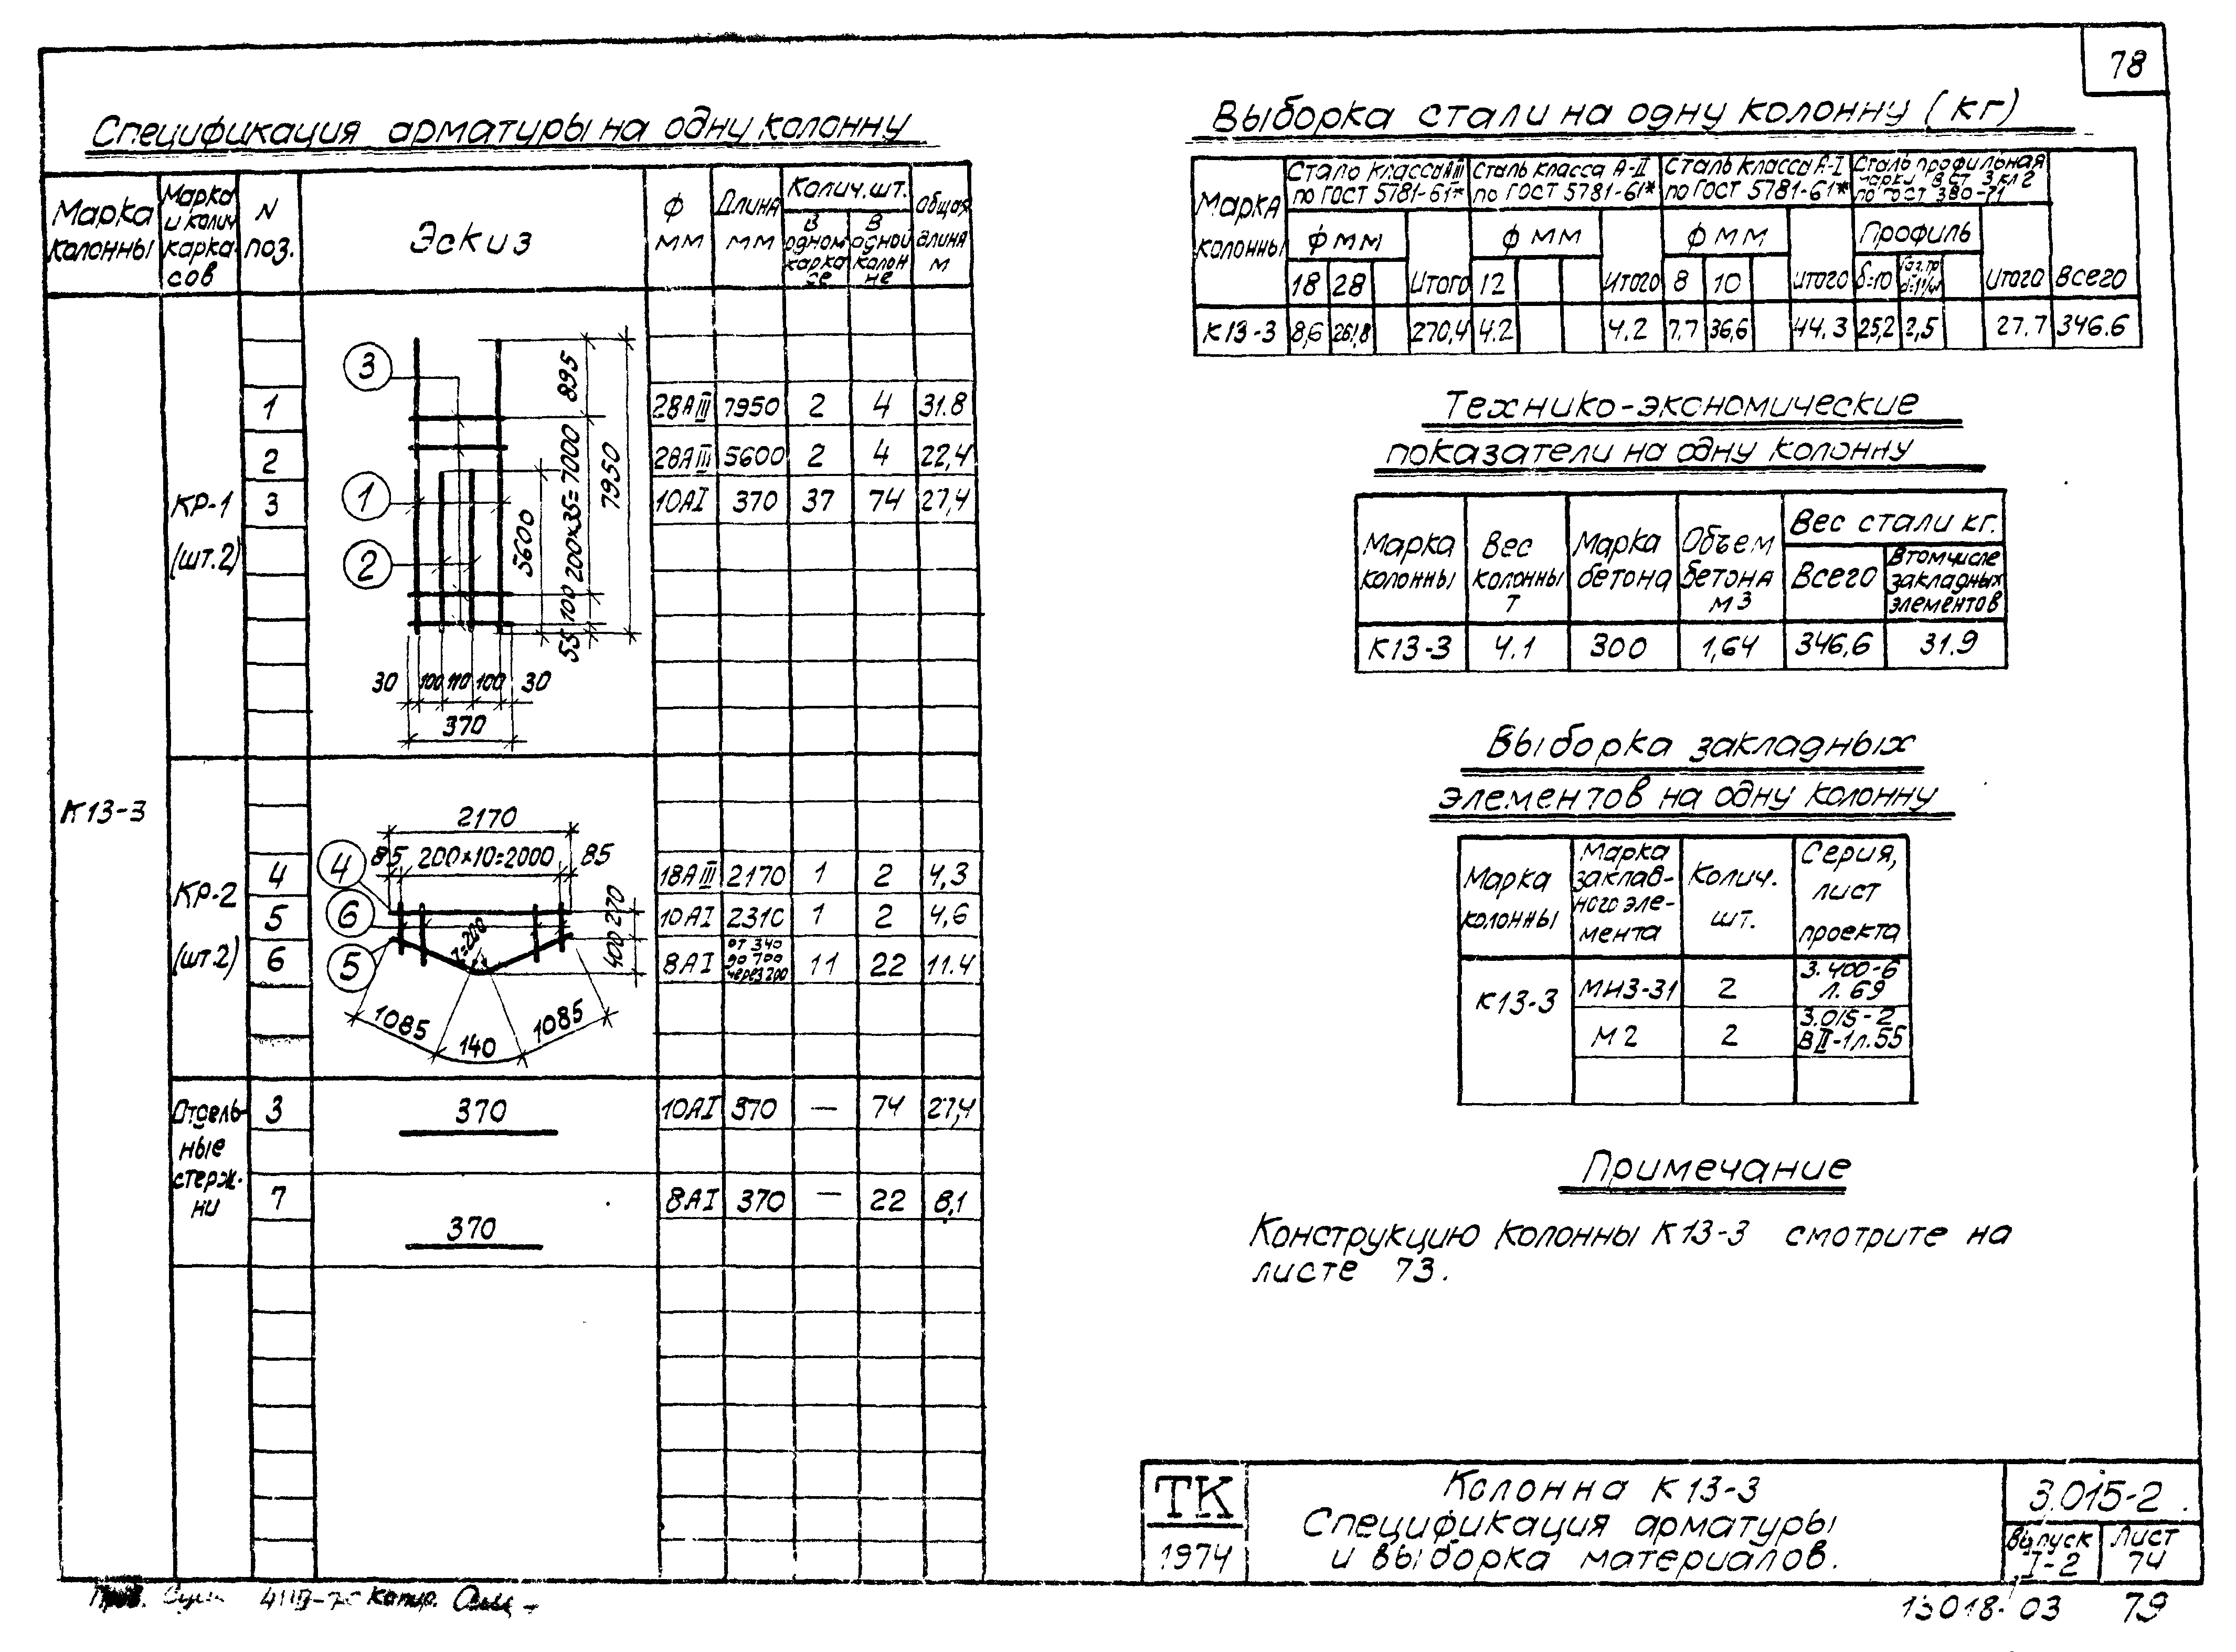 78
Спецификация арматуры на одну колонну
Марка колонны
Марка и колич каркасов
N поз.
Эскиз
Ф мм
Длина мм
Колич. шт.
В одном каркасе
В одной колонне
Общая длина м
К13-3
КР-1 (шт.2)
1 28АIII 7950 2 4 31.8
2 28АIII 5600 2 4 22,4
3 10АI 370 37 74 27,4
3
1
2
895
200х35=7000
7950
5600
100
55
30 100 110 100 30
370
КР-2 (шт.2)
4 18АIII 2170 1 2 4,3
5 10АI 2310 1 2 4,6
6 8АI от 340 до 700 через 200 11 22 11.4
2170
85 200х10=2000 85
4
6
5
z=200
270
400
1085 140 1085
Отдельные стержни
3 370 10АI 370 — 74 27,4
7 370 8АI 370 — 22 8,1
Выборка стали на одну колонну (кг)
Марка колонны
Сталь класса АIII по ГОСТ 5781-61*
Сталь класса А-II по ГОСТ 5781-61*
Сталь класса А-I по ГОСТ 5781-61*
Сталь профильная марки В СТ 3 кл 2 по ГОСТ 380-71
Всего
Ф мм Ф мм Ф мм Профиль
18 28 Итого 12 Итого 8 10 Итого δ=10 Итого
К13-3 8,6 261,8 270,4 4.2 4.2 7,7 36,6 44.3 25,2 2,5 27.7 346.6
Технико-экономические
показатели на одну колонну
Марка колонны
Вес колонны Т
Марка бетона
Объем бетона м3
Вес стали кг.
Всего
В том числе закладных элементов
К13-3 4.1 300 1,64 346,6 31.9
Выборка закладных
элементов на одну колонну
Марка колонны
Марка закладного элемента
Колич. шт.
Серия, лист проекта
К13-3
МНЗ-31 2 3.400-6 л. 69
М2 2 3.015-2 ВII-1 л.55
Примечание
Конструкцию колонны К13-3 смотрите на
листе 73.
ТК
1974
Колонна К13-3
Спецификация арматуры
и выборка материалов.
3.015-2
Выпуск I-2
Лист 74
Копир.
13018-03 79